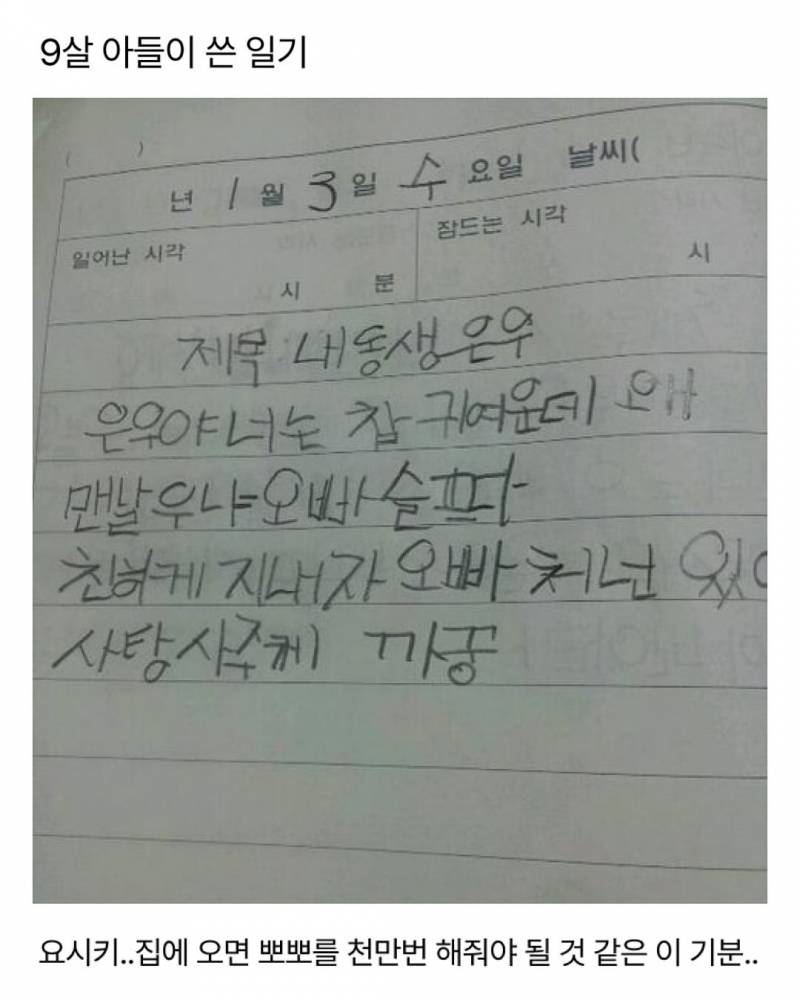 9살 아들이 쓴 일기
( )
년 1월 3일 수요일 날씨(
일어난 시각
시 분
잠드는 시각
시
제목 내동생은우
은우야너는 참 귀여운데 왜
맨날우냐오빠슬프다
친하게 지내자 오빠 처넌 있어
사탕사주께 까꿍
요시키..집에 오면 뽀뽀를 천만번 해줘야 될 것 같은 이 기분..